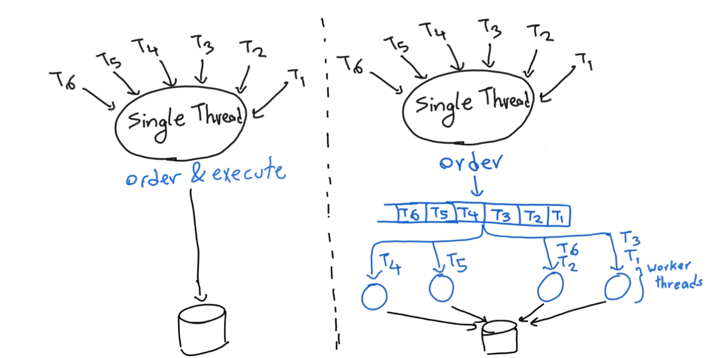 T6 T5 T4 T3 T2 T1
Single Thread
order & execute
T6 T5 T4 T3 T2 T1
Single Thread
order
T6 T5 T4 T3 T2 T1
T4 T5 T6 T3
T2 T1
worker
threads